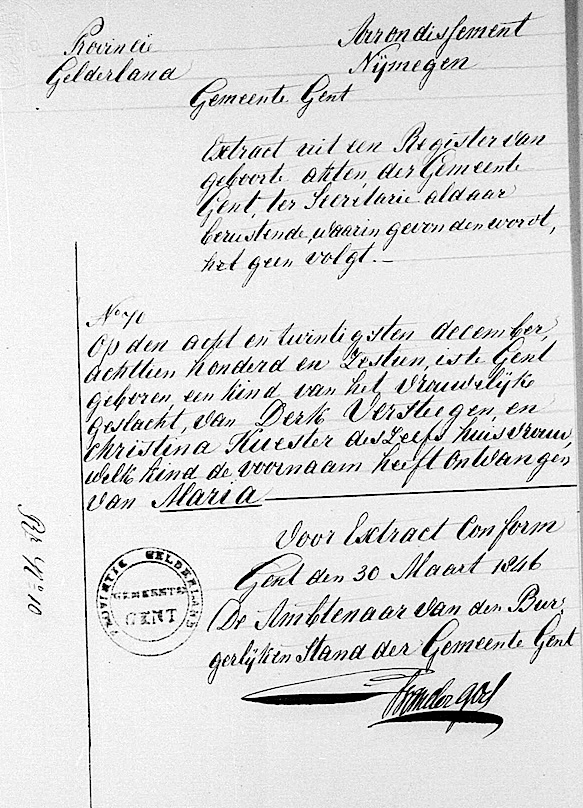 Provincie
Gelderland
Arrondissement
Nijmegen
Gemeente Gent
Extract uit een Register van
geboorte akten, der Gemeente
Gent, ter Secretarie aldaar
berustende, waarin gevonden wordt,
het geen volgt.—
No 70
Op den acht en twintigsten december,
achttien honderd en Zestien, is te Gent
geboren, een kind van het vrouwelijk
geslacht, van Derk Verstiegen, en
Christina Kuester deszelfs huisvrouw,
welk kind de voornaam heeft ontvangen
van Maria
Voor Extract Conform
Gent den 30 Maart 1846
De Ambtenaar van den Bur-
gerlijken Stand der Gemeente Gent
No 10
PROVINTIE GELDERLAND
GEMEENTE
GENT